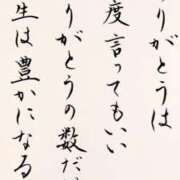 りがとうは
度言ってもいい
りがとうの数だ
生は豊かになる